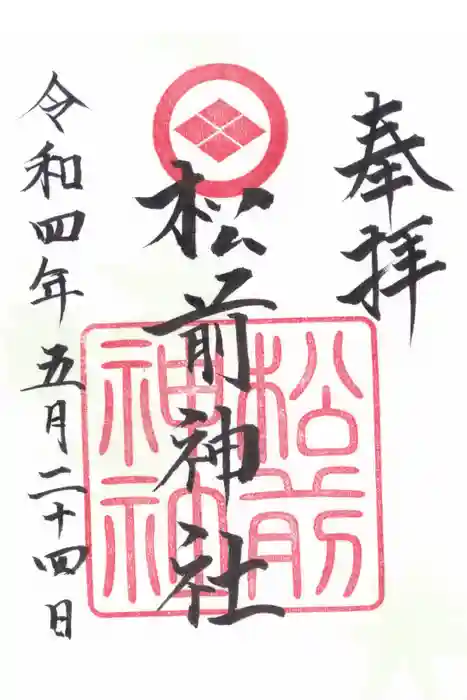 奉拝
松前神社
令和四年五月二十四日
松前
神社